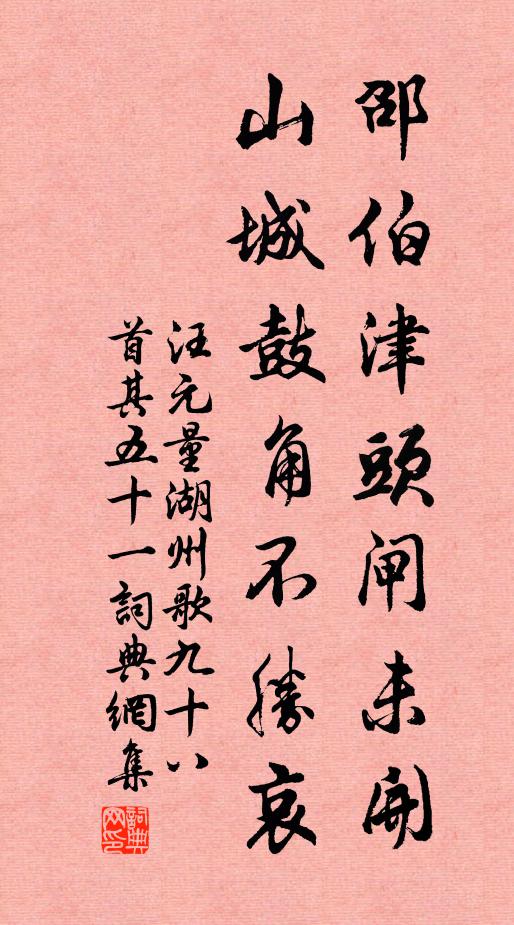 邵伯津頭閘未開
山城鼓角不勝哀
汪元量湖州歌九十八
首其五十一詞典網集
詞典
网印